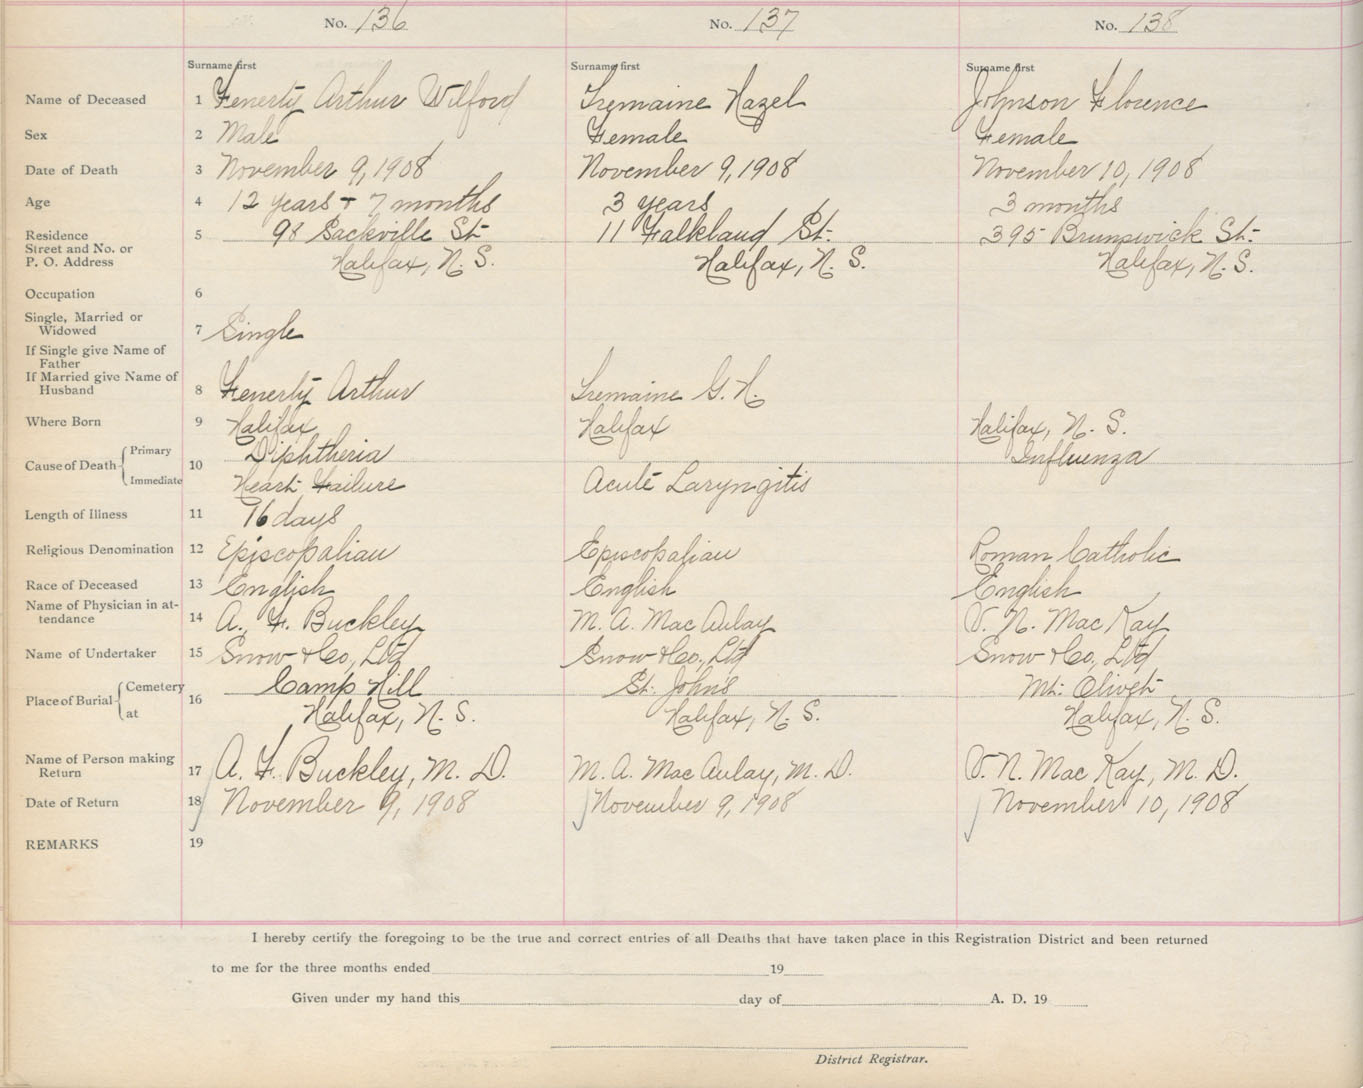 No. 136 No. 137 No. 138
Surname first Surname first Surname first
Name of Deceased 1 Fenerty Arthur Wilford Tremaine Hazel Johnson Florence
Sex 2 Male Female Female
Date of Death 3 November 9, 1908 November 9, 1908 November 10, 1908
Age 4 12 years + 7 months 3 years 3 months
Residence 5 98 Sackville St. 11 Falkland St. 395 Brunswick St.
Street and No. or
P. O. Address Halifax, N. S. Halifax, N. S. Halifax, N. S.
Occupation 6
Single, Married or
Widowed 7 Single
If Single give Name of
Father
If Married give Name of
Husband 8 Fenerty Arthur Tremaine G. H.
Where Born 9 Halifax Halifax Halifax, N. S.
Primary Diphtheria Influenza
Cause of Death 10
Immediate Heart Failure Acute Laryngitis
Length of Illness 11 16 days
Religious Denomination 12 Episcopalian Episcopalian Roman Catholic
Race of Deceased 13 English English English
Name of Physician in at-
tendance 14 A. F. Buckley M. A. MacAulay V. N. MacKay
Name of Undertaker 15 Snow & Co, Ltd Snow & Co., Ltd Snow & Co, Ltd
Cemetery Camp Hill St. John's Mt. Olivet
Place of Burial 16
at Halifax, N. S. Halifax, N. S. Halifax, N. S.
Name of Person making
Return 17 A. F. Buckley, M. D. M. A. MacAulay, M. D. V. N. MacKay, M. D.
Date of Return 18 November 9, 1908 November 9, 1908 November 10, 1908
REMARKS 19
I hereby certify the foregoing to be the true and correct entries of all Deaths that have taken place in this Registration District and been returned
to me for the three months ended 19
Given under my hand this day of A. D. 19
District Registrar.